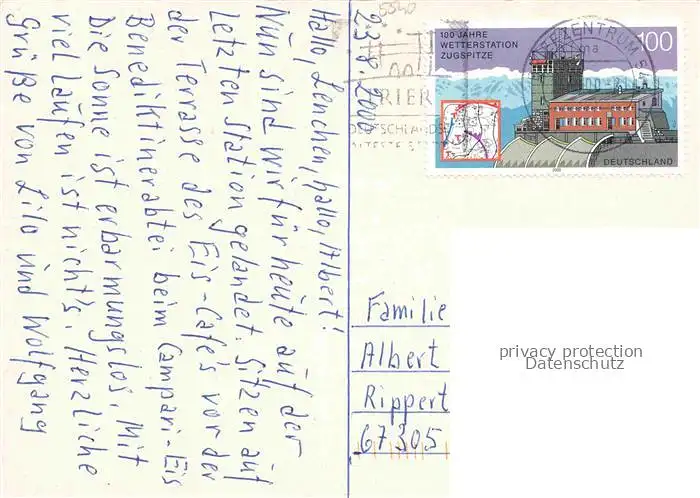 23.8.2000
Hallo, Lenchen, hallo, Albert!
Nun sind wir für heute auf der
letzten Station gelandet. Sitzen auf
der Terrasse des Eis-Cafe's vor der
Benediktinerabtei beim Campari-Eis
Die Sonne ist erbarmungslos. Mit
viel laufen ist nicht's. Herzliche
Grüße von Lilo und Wolfgang
5540
100 JAHRE
WETTERSTATION
ZUGSPITZE
100
DEUTSCHLAND
2000
EZENTRUM 54
TRIER
DEUTSCHLANDS
ÄLTESTE ST
Familie
Albert
Rippert
67305
privacy protection
Datenschutz